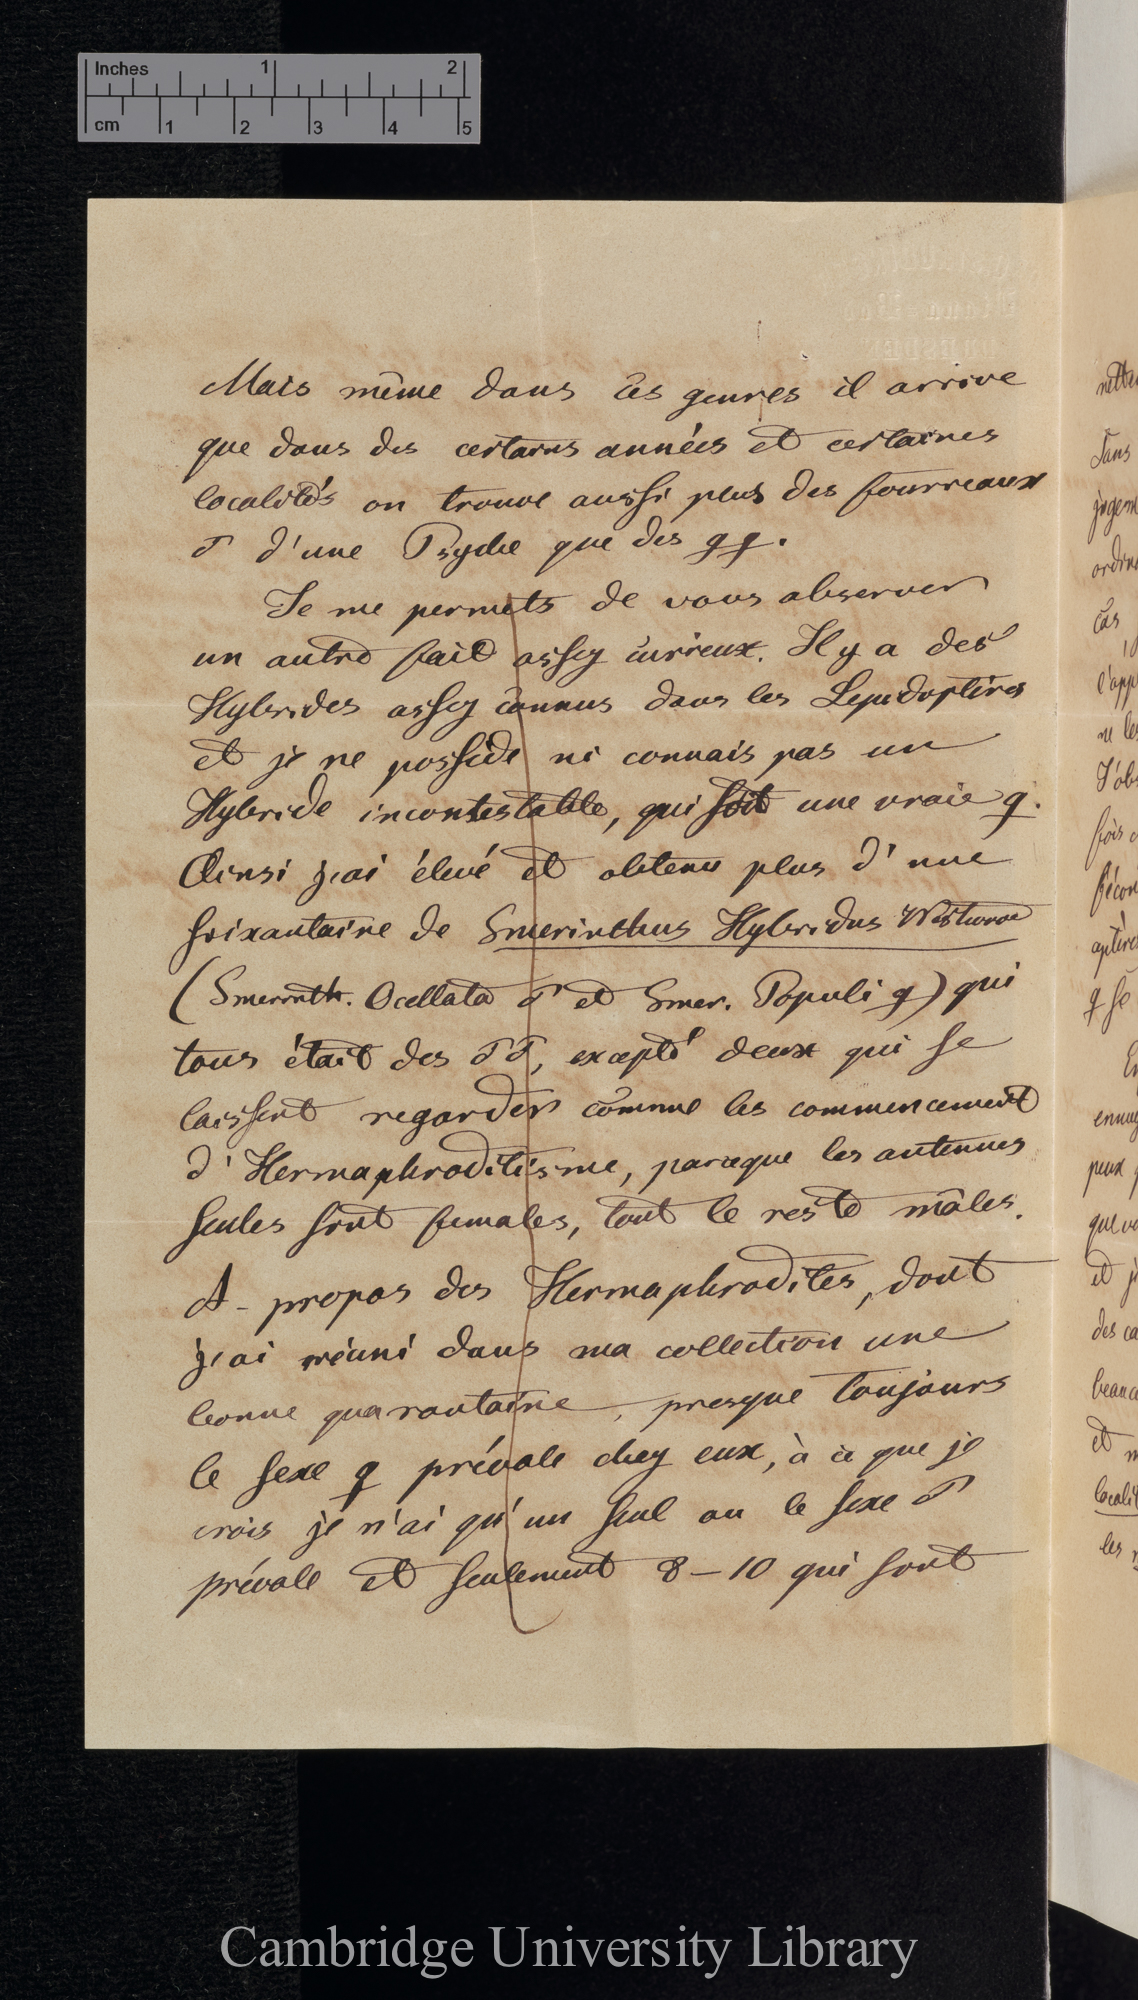 Inches 1 2
cm 1 2 3 4 5
Mais même dans ces genres il arrive
que dans des certains années et certaines
localités on trouve aussi plus des fourreaux
♂ d'une Psyche que des ♀♀.
Je me permets de vous observer
un autre fait assez curieux. Il y a des
Hybrides assez connus dans les Lepidoptères
et je ne possède ni connais pas un
Hybride incontestable, qui soit une vraie ♀.
Ainsi j'ai élevé et obtenu plus d'une
soixantaine de Smerinthus Hybridus Westwood
(Smerinth. Ocellata ♂ et Smer. Populi ♀) qui
tous était des ♂♂, excepté deux qui se
laissent regarder comme les commencement
d'Hermaphroditisme, parceque les antennes
seules sont females, tout le reste mâles.
A-propos des Hermaphrodites, dont
j'ai réuni dans ma collection une
bonne quarantaine, presque toujours
le sexe ♀ prévale chez eux, à ce que je
crois je n'ai qu'un seul ou le sexe ♂
prévale et seulement 8–10 qui sont
dans
ordin
cas
l'app
ne les
J'obs
fois
fécon
aptère
♀ se
En
ennuy
peux
que vo
et j
des ca
beauc
et m
localit
les
Cambridge University Library